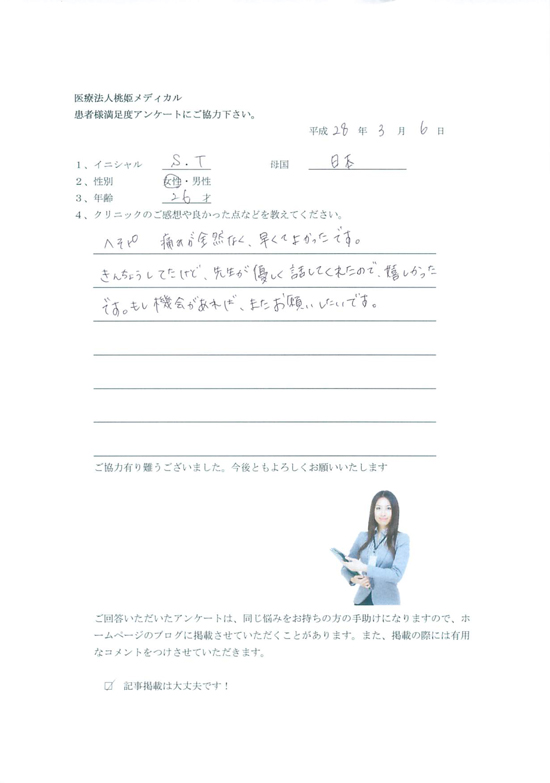 医療法人桃姫メディカル
患者様満足度アンケートにご協力下さい。
平成 28 年 3 月 6 日
1、イニシャル S.T 母国 日本
2、性別 女性・男性
3、年齢 26 才
4、クリニックのご感想や良かった点などを教えてください。
へそピ 痛みが全然なく、早くてよかったです。
きんちょうしてたけど、先生が優しく話してくれたので、嬉しかった
です。もし機会があれば、またお願いしたいです。
ご協力有り難うございました。今後ともよろしくお願いいたします
ご回答いただいたアンケートは、同じ悩みをお持ちの方の手助けになりますので、ホ
ームページのブログに掲載させていただくことがあります。また、掲載の際には有用
なコメントをつけさせていただきます。
☑ 記事掲載は大丈夫です！